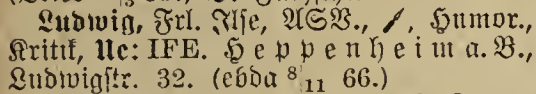 Ludwig, Frl. Ilse, ASV., Humor.,
Kritik, Ue: IFE. Heppenheim a. B.,
Ludwigstr. 32. (ebda 8/11 66.)